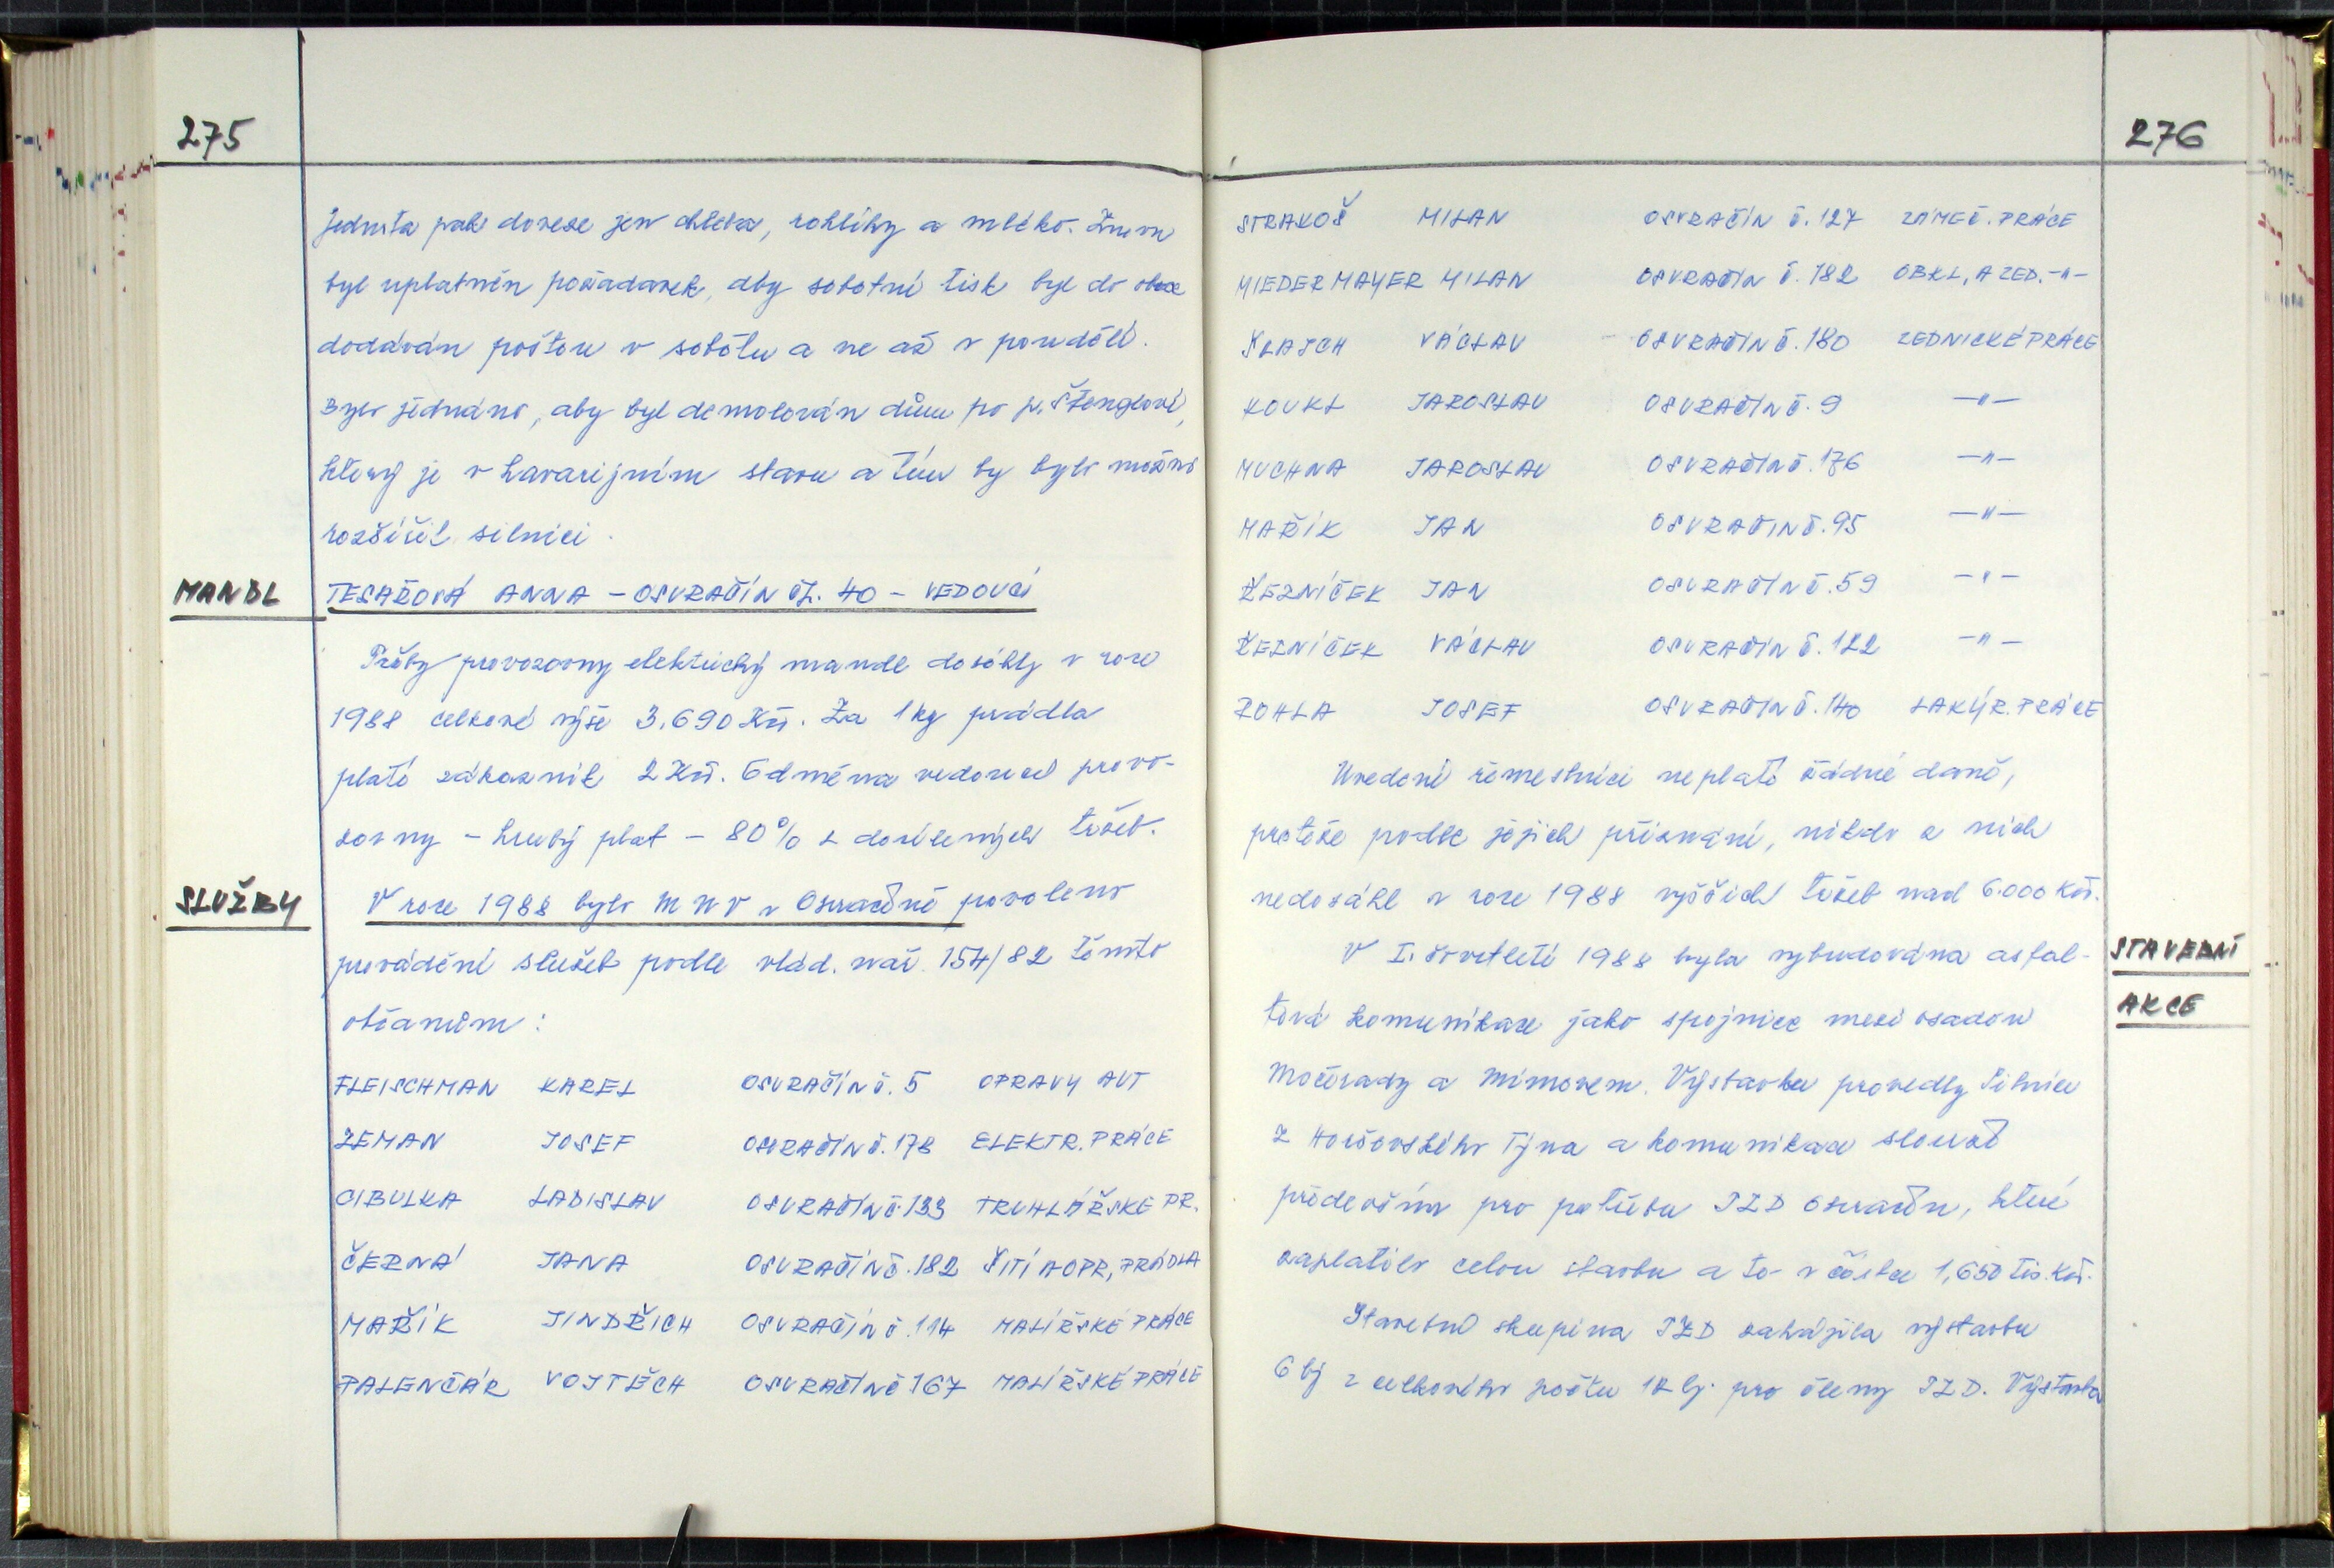 275
Jednota pak doveze jen chleba, rohlíky a mléko. Znovu
byl uplatněn požadavek, aby sobotní tisk byl do obce
dodáván poštou v sobotu a ne až v pondělí.
Bylo jednáno, aby byl demolován dům po p. Štenglovi,
který je v havarijním stavu a tím by bylo možno
rozšířit silnici.
MANDL TESAŘOVÁ ANNA - OSVRAČÍN ČP. 40 - VEDOUCÍ
Tržby provozovny elektrický mandl dosáhly v roce
1988 celkové výše 3.690 Kčs. Za 1 kg prádla
platí zákazník 2 Kčs. Odměna vedoucí provo-
zovny - hrubý plat - 80% z docílených tržeb.
SLUŽBY V roce 1988 bylo MNV v Osvračíně povoleno
provádění služeb podle vlád. nař. 154/82 těmto
občanům:
FLEISCHMAN KAREL OSVRAČÍN Č. 5 OPRAVY AUT
ZEMAN JOSEF OSVRAČÍN Č. 178 ELEKTR. PRÁCE
CIBULKA LADISLAV OSVRAČÍN Č. 133 TRUHLÁŘSKÉ PR.
ČERNÁ JANA OSVRAČÍN Č. 182 ŠITÍ A OPR, PRÁDLA
MAŘÍK JINDŘICH OSVRAČÍN Č. 114 MALÍŘSKÉ PRÁCE
PALENČÁR VOJTĚCH OSVRAČÍN Č 167 MALÍŘSKÉ PRÁCE
276
STRAKOŠ MILAN OSVRAČÍN Č. 127 ZÁMEČ. PRÁCE
NIEDERMAYER MILAN OSVRAČÍN Č. 182 OBKL, A ZED. -"-
ŠLAJCH VÁCLAV OSVRAČÍN Č. 180 ZEDNICKÉ PRÁCE
KOUKL JAROSLAV OSVRAČÍN Č. 9 -"-
MUCHNA JAROSLAV OSVRAČÍN Č. 176 -"-
MAŘÍK JAN OSVRAČÍN Č. 95 -"-
ŽEZNÍČEK JAN OSVRAČÍN Č. 59 -"-
ŽELNÍČEK VÁCLAV OSVRAČÍN Č. 122 -"-
ZOHLA JOSEF OSVRAČÍN Č. 140 LAKÝR. PRÁCE
Uvedení řemeslníci neplatí žádné daně,
protože podle jejich přiznání, nikdo z nich
nedosáhl v roce 1988 vyšších tržeb nad 6.000 Kčs.
V I. čtvrtletí 1988 byla vybudována asfal- STAVEBNÍ
tová komunikace jako spojnice mezi osadou AKCE
Močerady a Mimovem. Výstavbu provedly Silnice
z Horšovského Týna a komunikace slouží
především pro potřebu JZD Osvračín, které
zaplatilo celou stavbu a to v částce 1,650 tis. Kčs.
Stavební skupina JZD zahájila výstavbu
6 bj z celkového počtu 12 bj. pro členy JZD. Výstavba